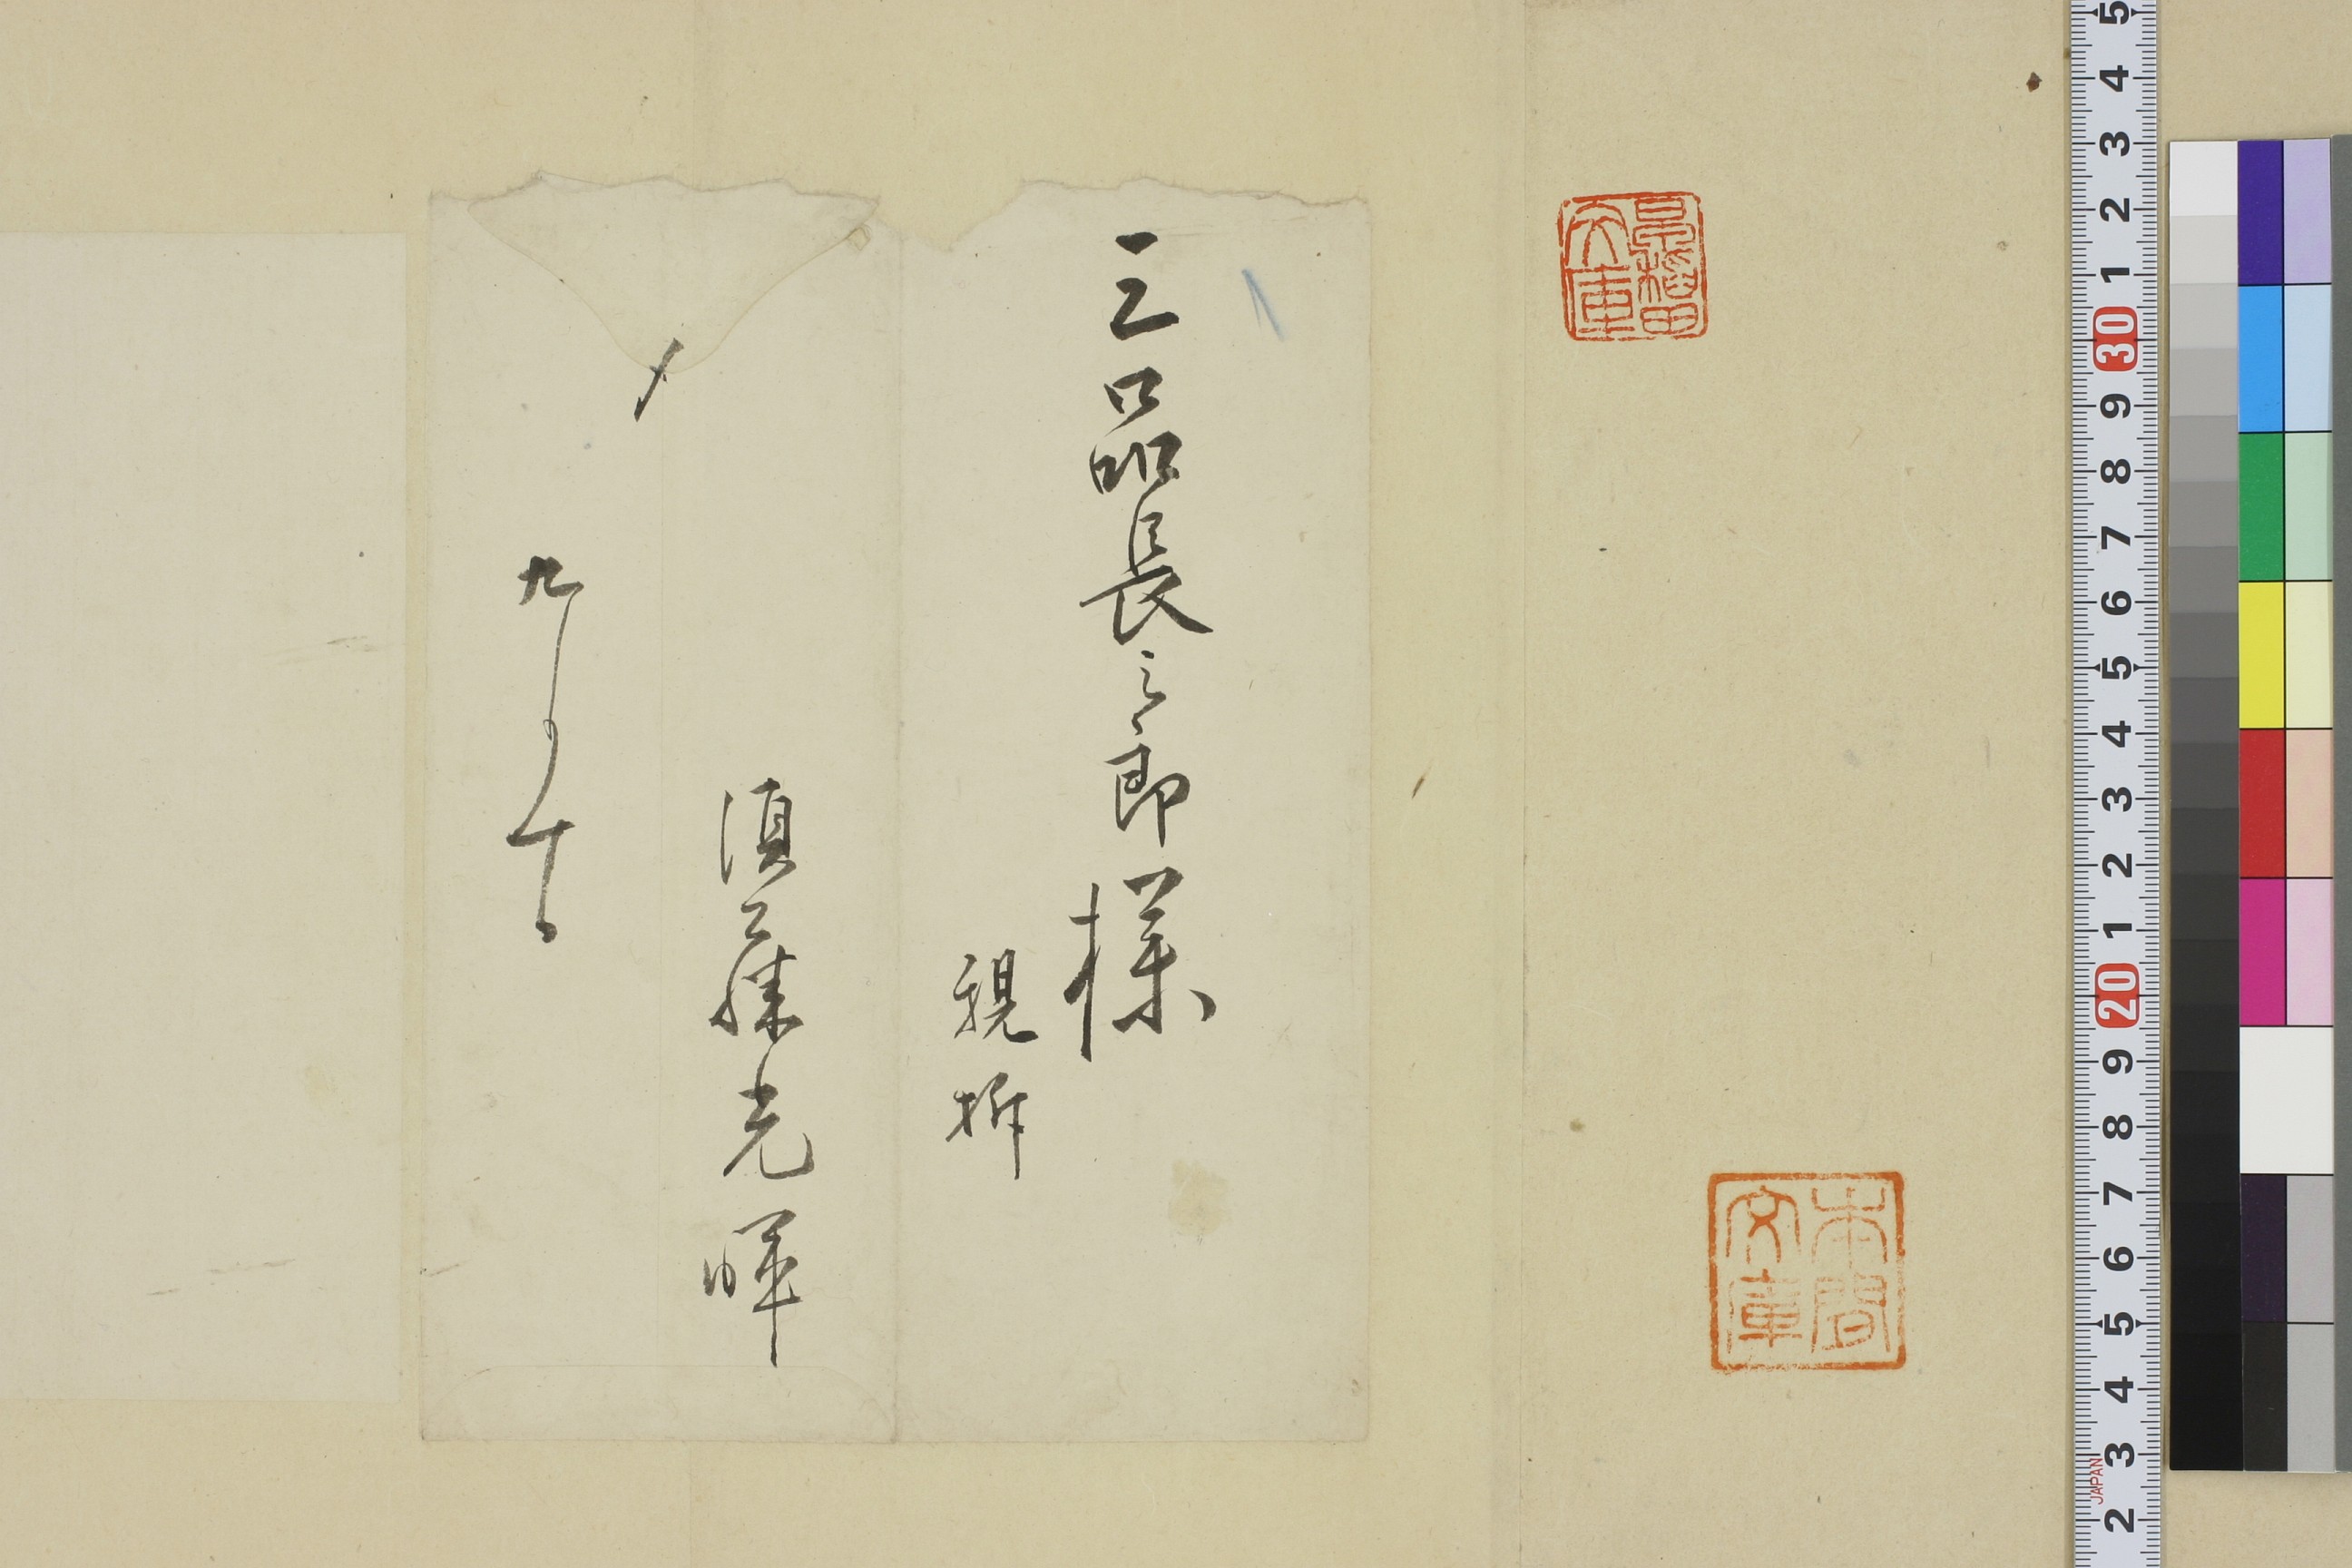 三品長三郎様
親拆
須藤光暉
〆
九月十
本間文庫
5
4
3
2
1
30
9
8
7
6
5
4
3
2
1
20
9
8
7
6
5
4
3
2
JAPAN